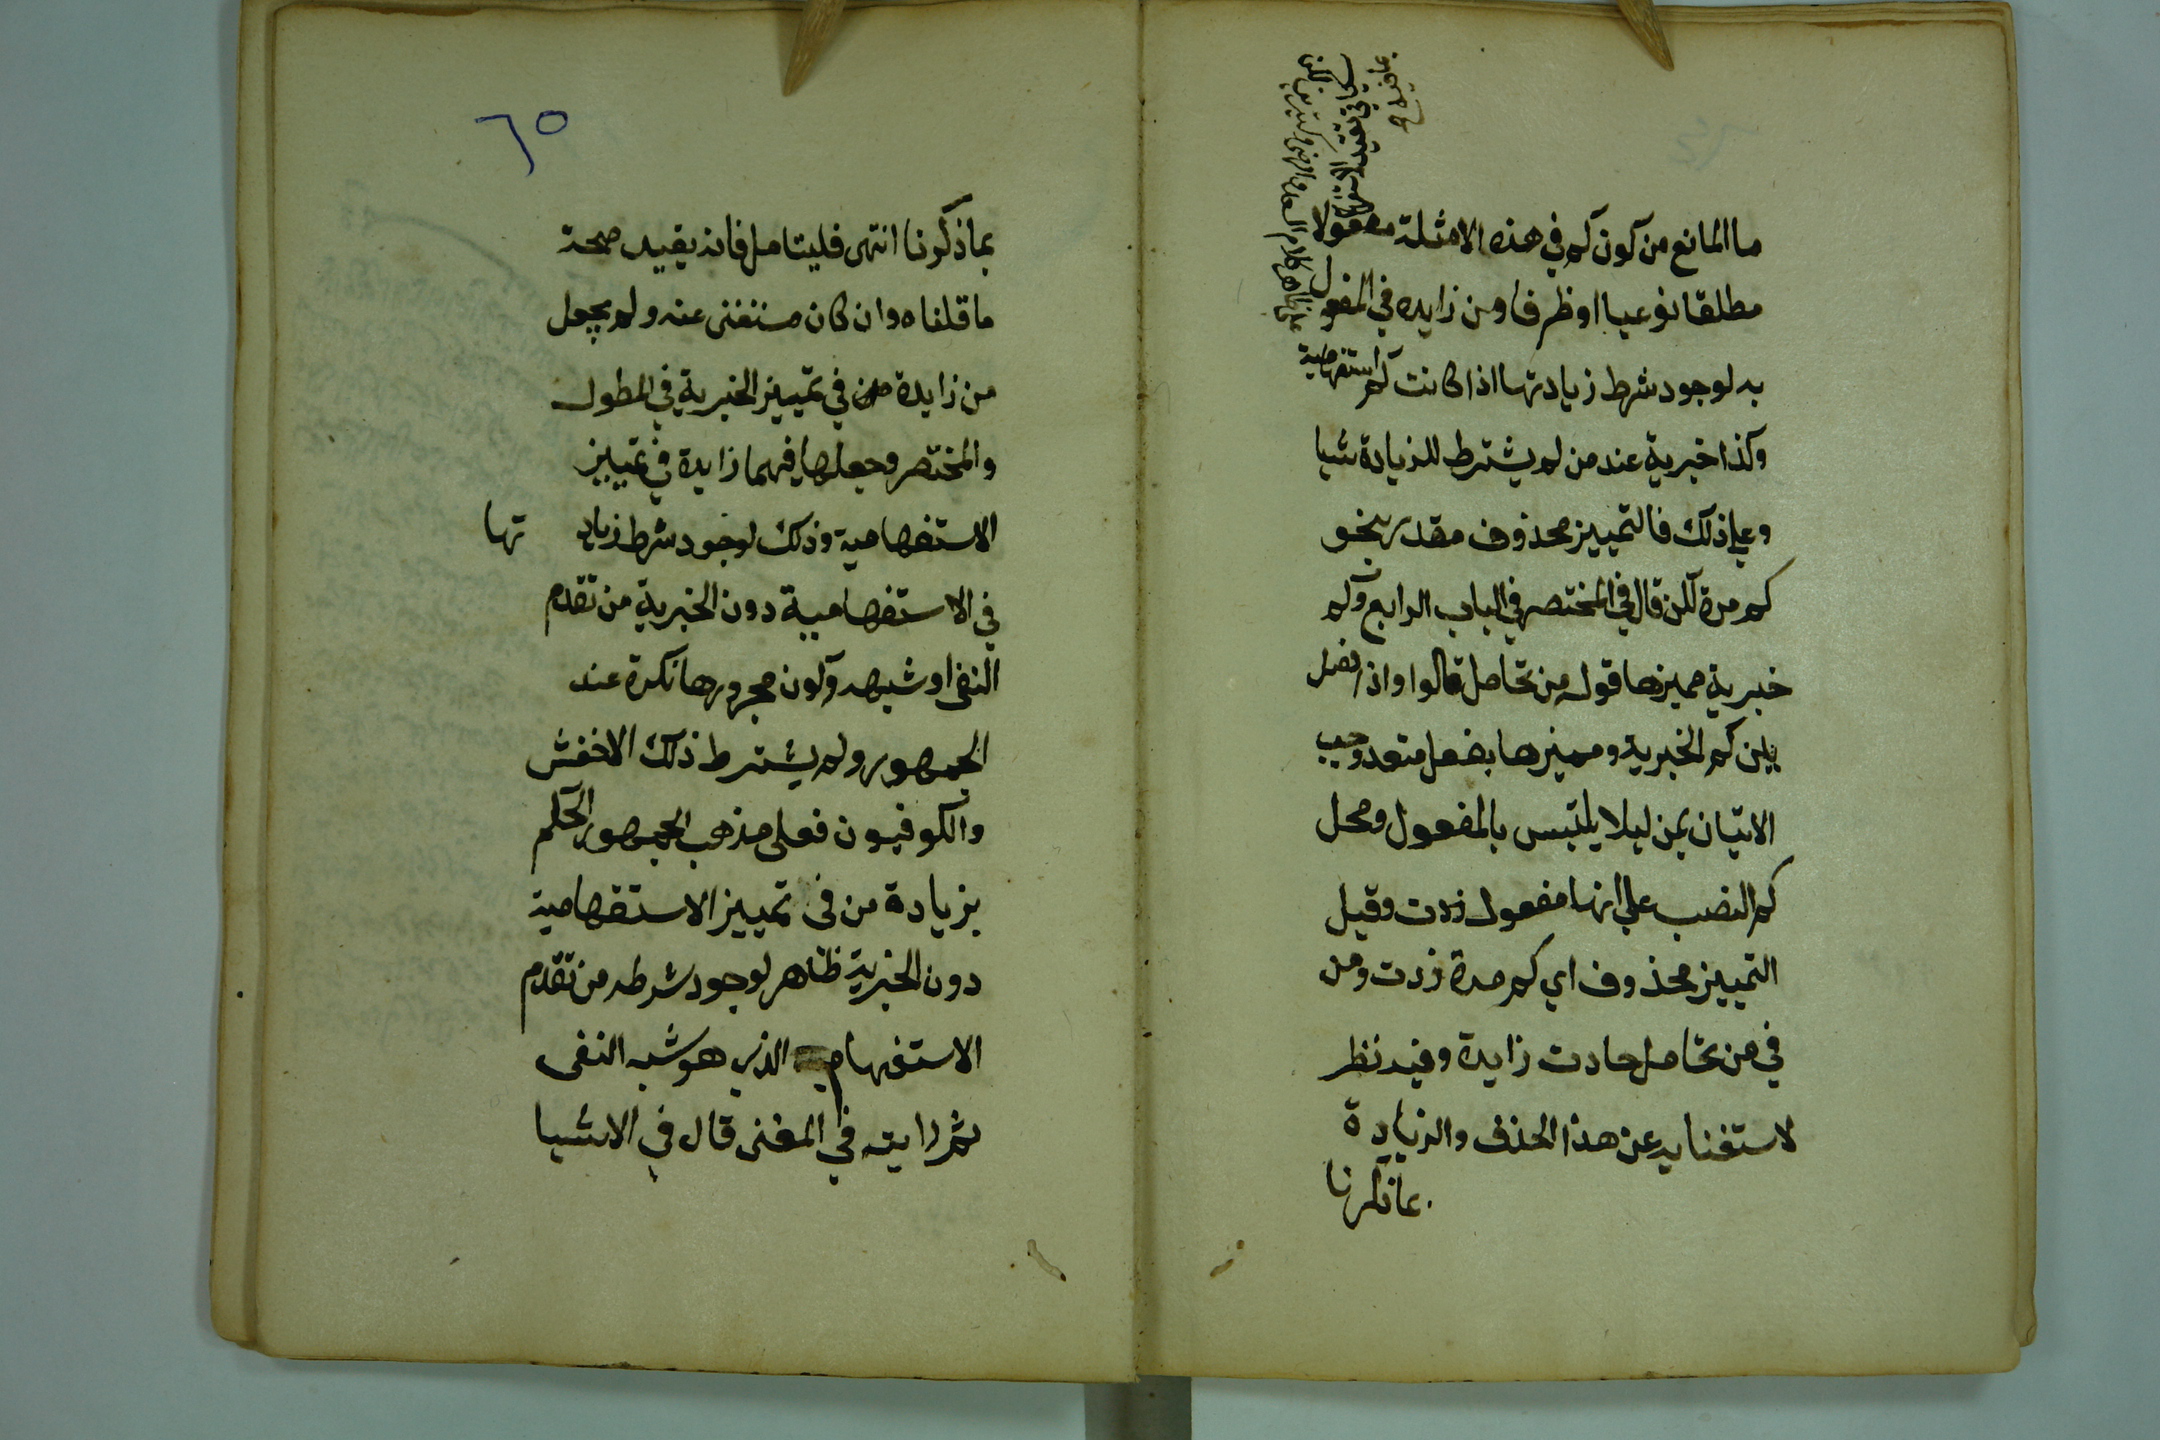 ما المانع من كون كم في هذه الامثلة مفعولا
مطلقا نوعيا او ظرفا ومن زايده في المفعول
به لوجود شرط زيادتها اذا كانت كم استفهامية
وكذا خبرية عند من لم يشترط للزيادة شيا
وعلي ذلك فالتمييز محذوف مقدر بنحو
كم مرة لكن قال في المختصر في الباب الرابع وكم
خبرية مميزها قوله من تحامل قالوا واذا فصل
بين كم الخبرية ومميزها بفعل متعد وجب
الاتيان بمن ليلا يلتبس بالمفعول ومحل
كم النصب علي انها مفعول ذدت وقيل
التمييز محذوف اي كم مرة ذدت ومن
في من تحامل حادث زايدة وفيه نظر
لاستغنايه عن هذا الحذف والزيادة
بما ذكرنا
٦٥
بما ذكرنا انتهى فليتامل فانه يفيد صحة
ما قلناه وان كان مستغنى عنه ولم يجعل
من زايدة في تمييز الخبرية في المطول
والمختصر وجعلها فيهما زايدة في تمييز
الاستفهامية وذلك لوجود شرط زيادتها
في الاستفهامية دون الخبرية من تقدم
النفى او شبهه وكون مجرورها نكرة عند
الجمهور ولم يشترط ذلك الاخفش
والكوفيون فعلى مذهب الجمهور الحكم
بزيادة من فى تمييز الاستفهامية
دون الخبرية ظاهر لوجود شرطه من تقدم
الاستفهام الذي هو شبه النفى
ثم رايته في المغنى قال في الاشيا